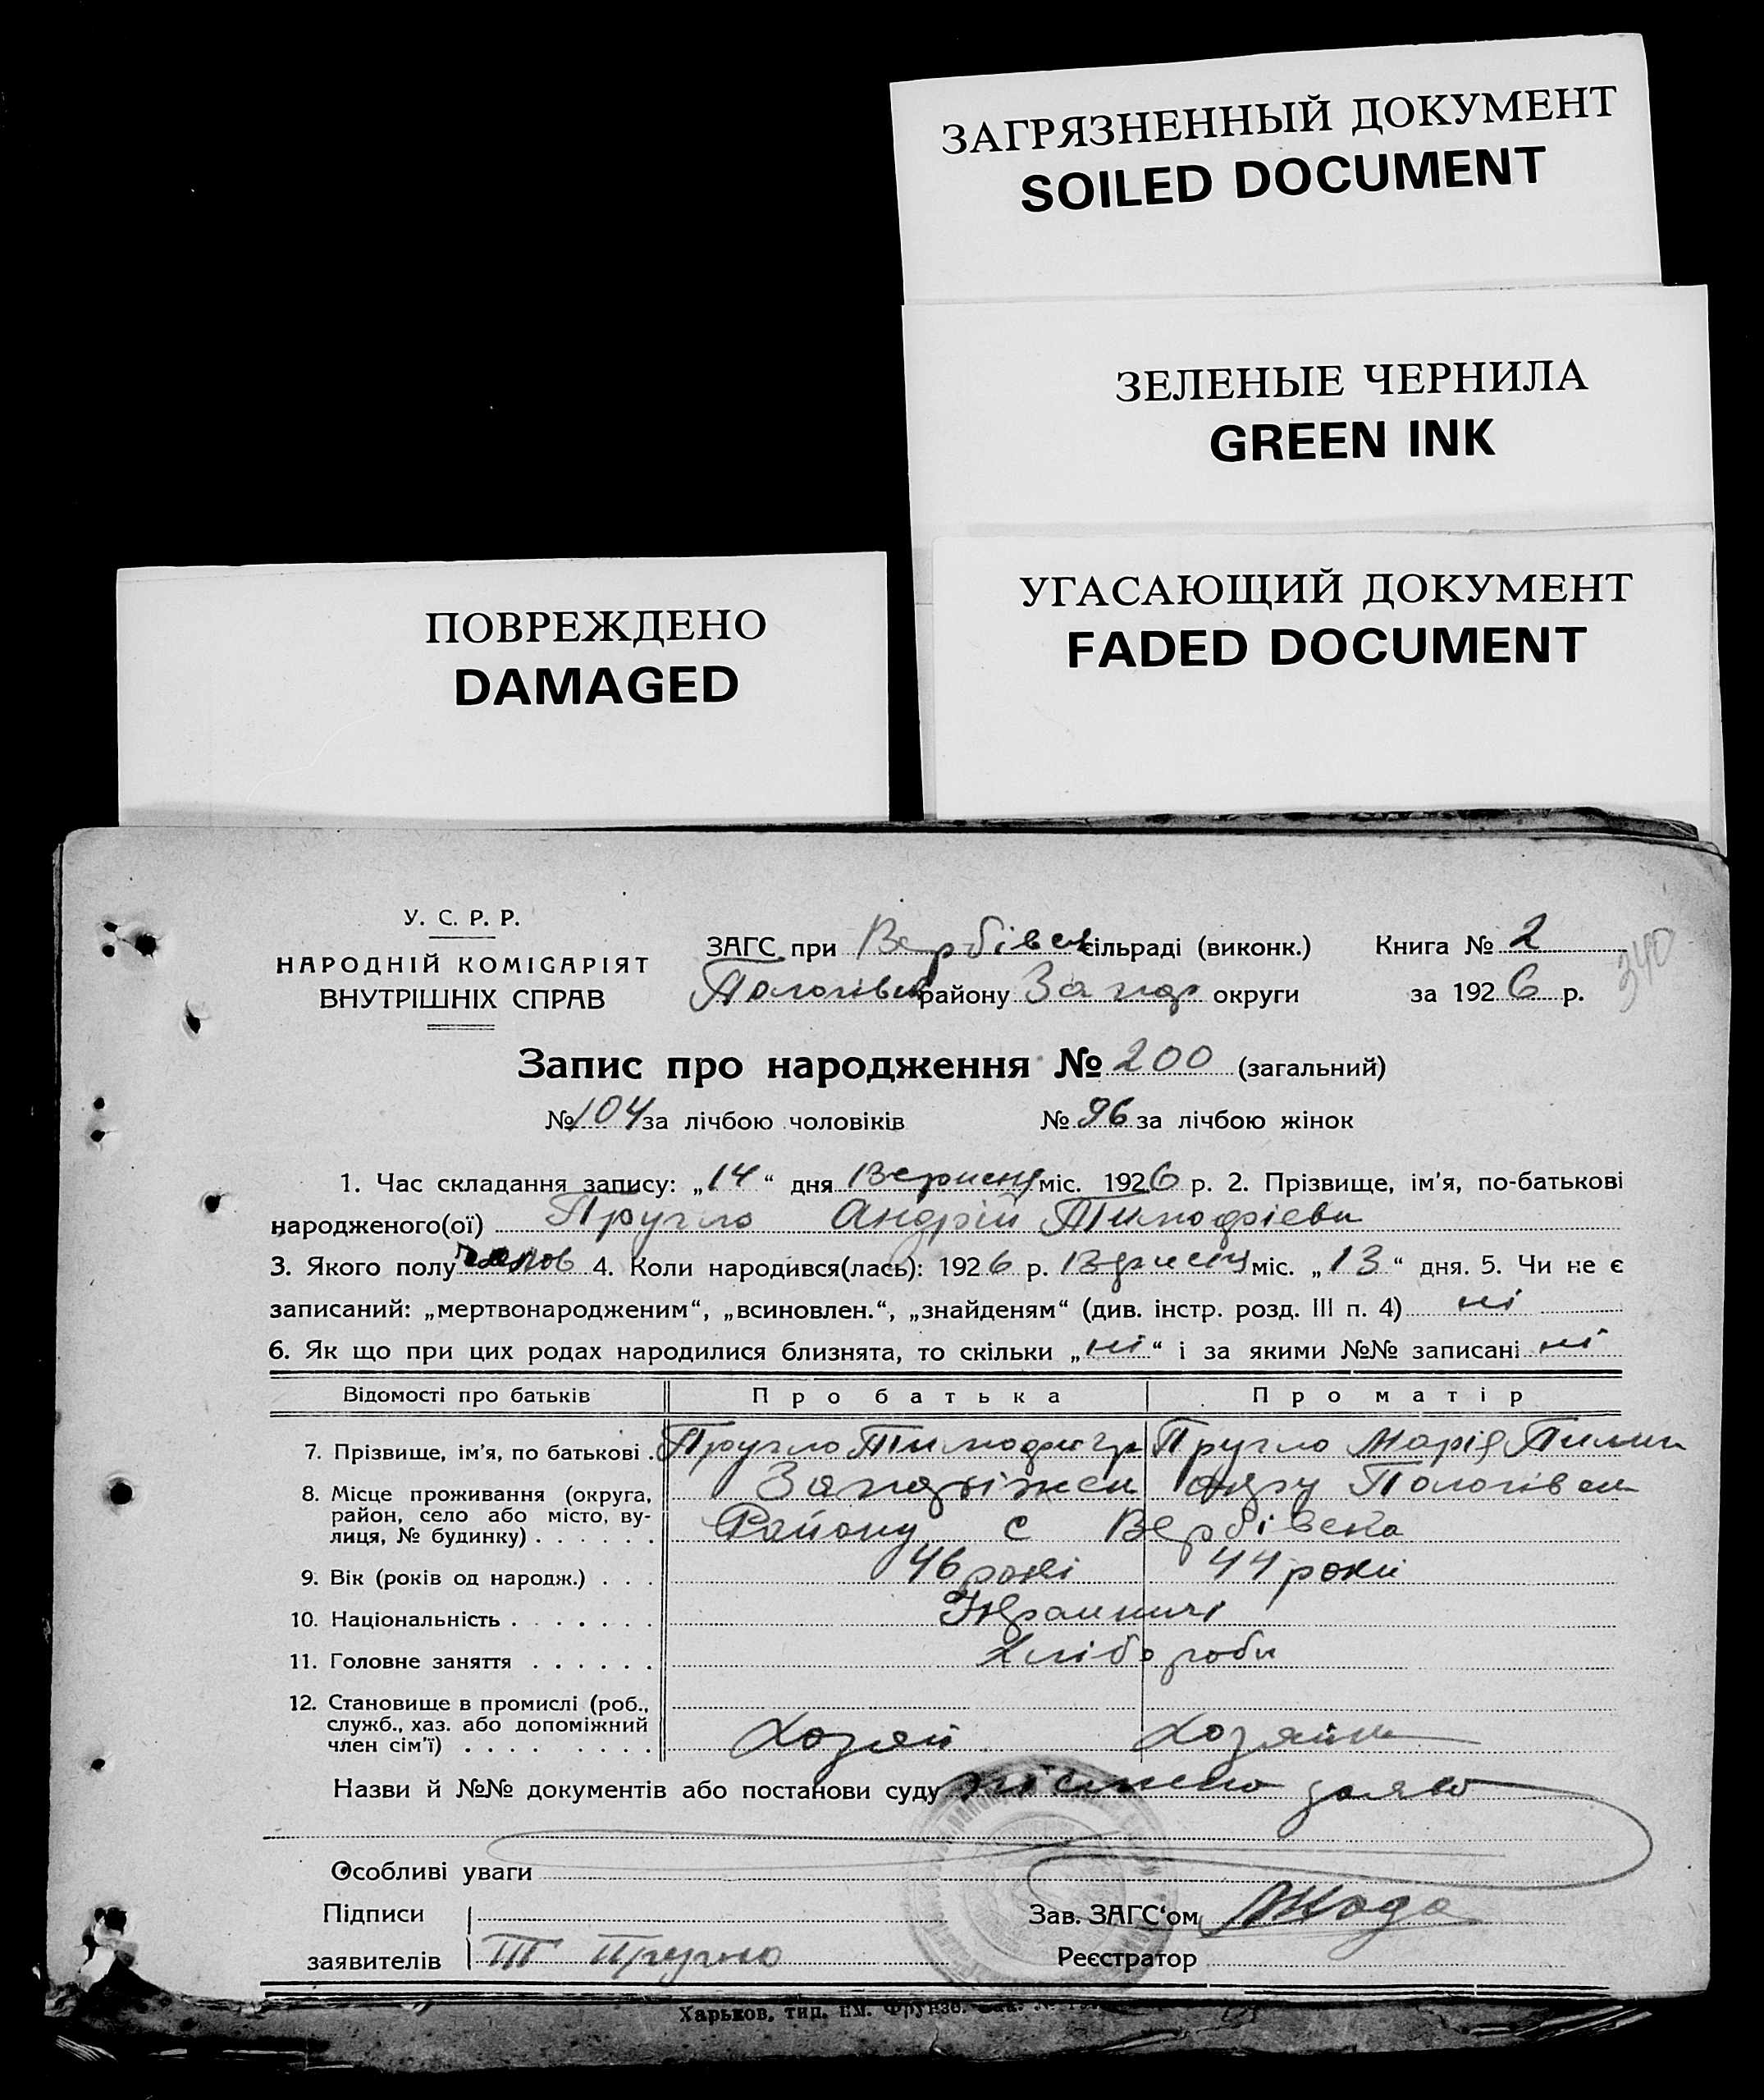 ЗАГРЯЗНЕННЫЙ ДОКУМЕНТ
SOILED DOCUMENT
ЗЕЛЕНЫЕ ЧЕРНИЛА
GREEN INK
УГАСАЮЩИЙ ДОКУМЕНТ
FADED DOCUMENT
ПОВРЕЖДЕНО
DAMAGED
У. С. Р. Р.
НАРОДНІЙ КОМІСАРІЯТ
ВНУТРІШНІХ СПРАВ
ЗАГС при Вербівск сільраді (виконк.) Книга № 2
Пологівськ району Запор округи за 1926 р.
340
Запис про народження № 200 (загальний)
№ 104 за лічбою чоловіків № 96 за лічбою жінок
1. Час складання запису: „14“ дня Вересня міс. 1926 р. 2. Прізвище, ім’я, по-батькові
народженого(ої) Пругло Андрій Тимофієви
3. Якого полу чолов 4. Коли народився(лась): 1926 р. Вересня міс. „13“ дня. 5. Чи не є
записаний: „мертвонародженим“, „всиновлен.“, „знайденям“ (див. інстр. розд. III п. 4) ні
6. Як що при цих родах народилися близнята, то скільки „ні“ і за якими №№ записані ні
Відомості про батьків Про батька Про матір
7. Прізвище, ім’я, по батькові . Пругло Тимофій Гр Пругло Марія Пилип
8. Місце проживання (округа, район, село або місто, ву-
лиця, № будинку) . . . . . . Запоріжськ окру Пологівськ
Району с Вербівска
9. Вік (років од народж.) . . . 46 рокі 44 роки
10. Національність . . . . . . . Українці
11. Головне заняття . . . . . . Хлібороби
12. Становище в промислі (роб.,
служб., хаз. або допоміжний
член сім’ї) . . . . . . . . Хозяй Хозяйк
Назви й №№ документів або постанови суду заяв
Особливі уваги
Підписи Зав. ЗАГС‘ом
заявителів Т Пругло Реєстратор
Харьков, тип. им. Фрунзе.